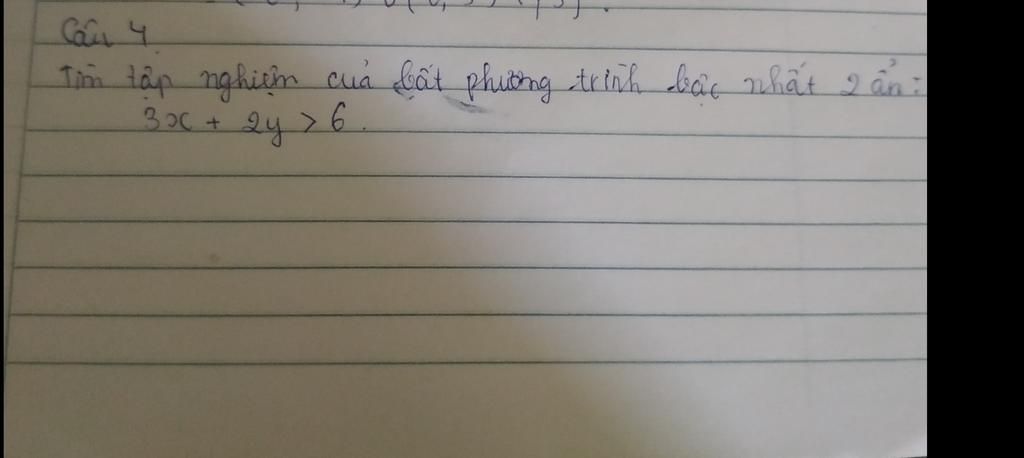 Câu 4.
Tìm tập nghiệm của bất phương trình bậc nhất 2 ẩn:
3x + 2y > 6.